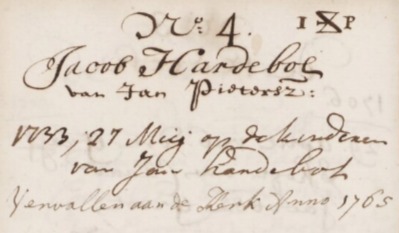 No. 4. I P
Jacob Hardebol
van Jan Pietersz:
1733, 27 Meij op de kinderen
van Jan Hardebol
Vervallen aan de Kerk Anno 1765